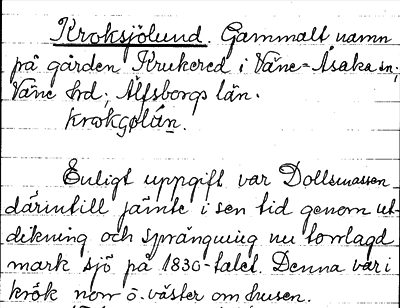 Kroksjölund. Gammalt namn
på gården Krukered i Väne-Åsaka sn;
Väne hd; Älfsborgs län.
krokgolán.
Enligt uppgift var Dollsmassen
därintill jämte i sen tid genom ut-
dikning och sprängning nu torrlagd
mark sjö på 1830-talet. Denna var i
krök norr ö. väster om husen.